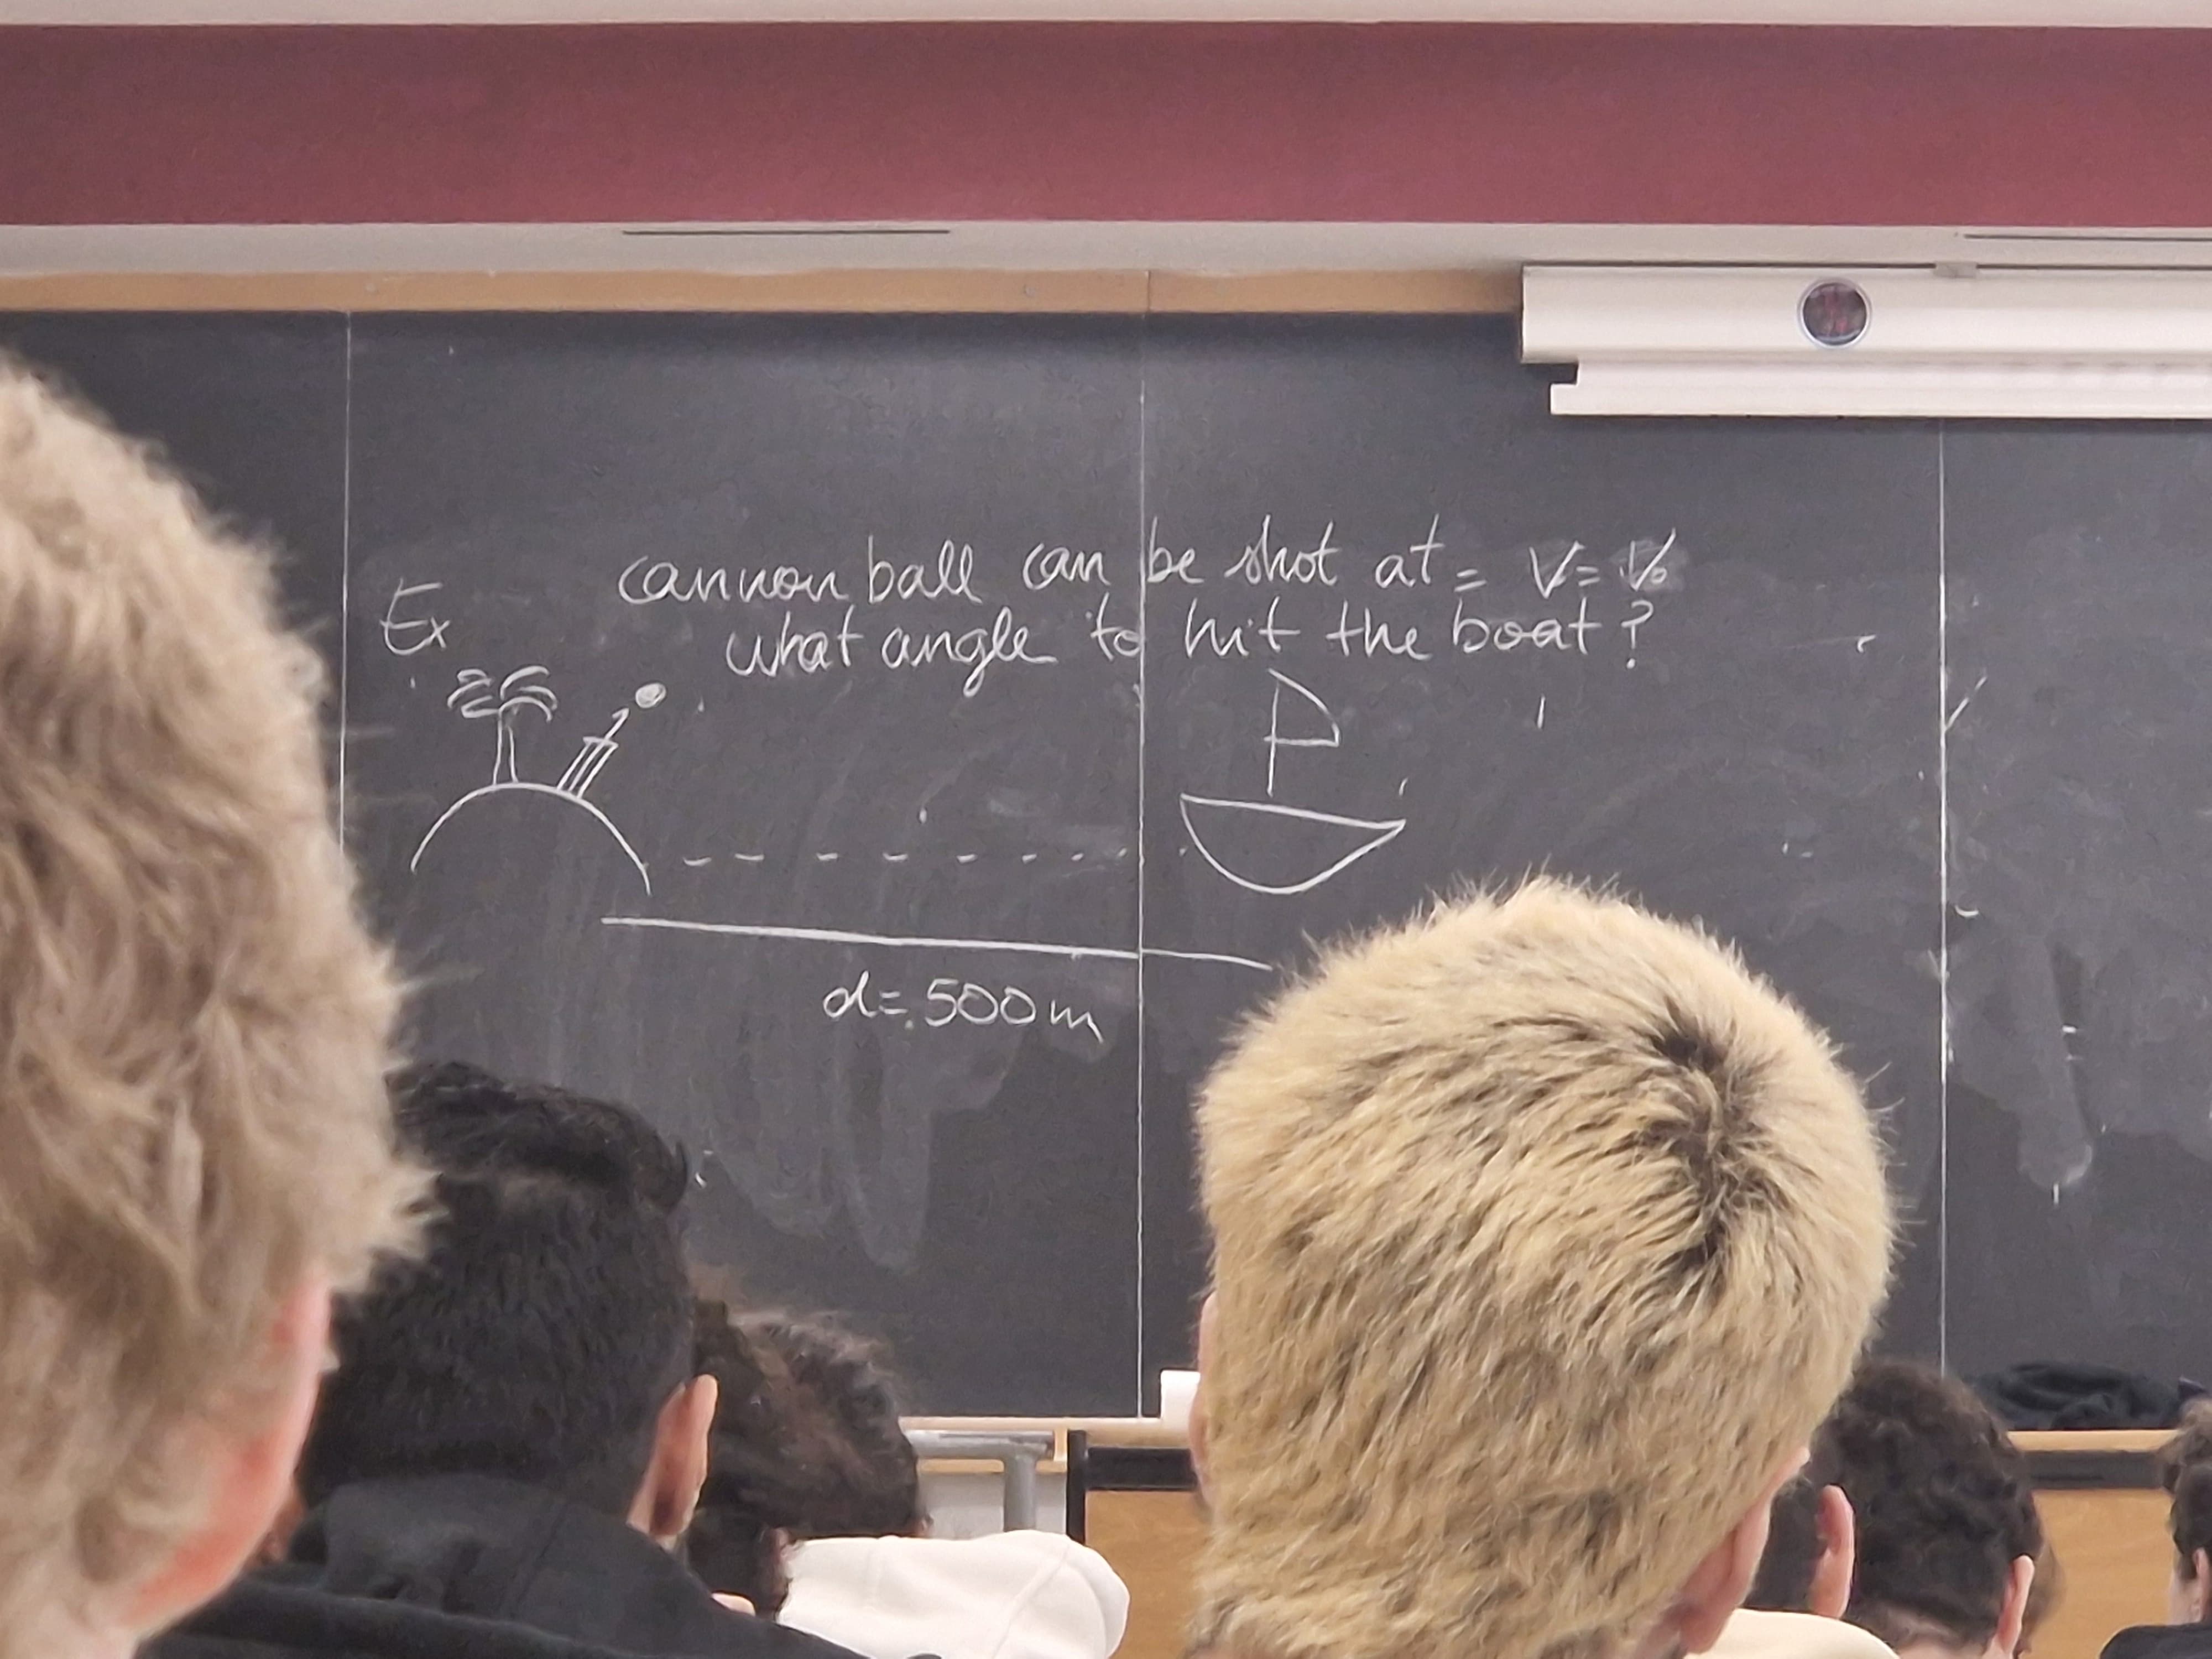 cannon ball can be shot at = V = V₀
Ex
what angle to hit the boat?
d = 500 m